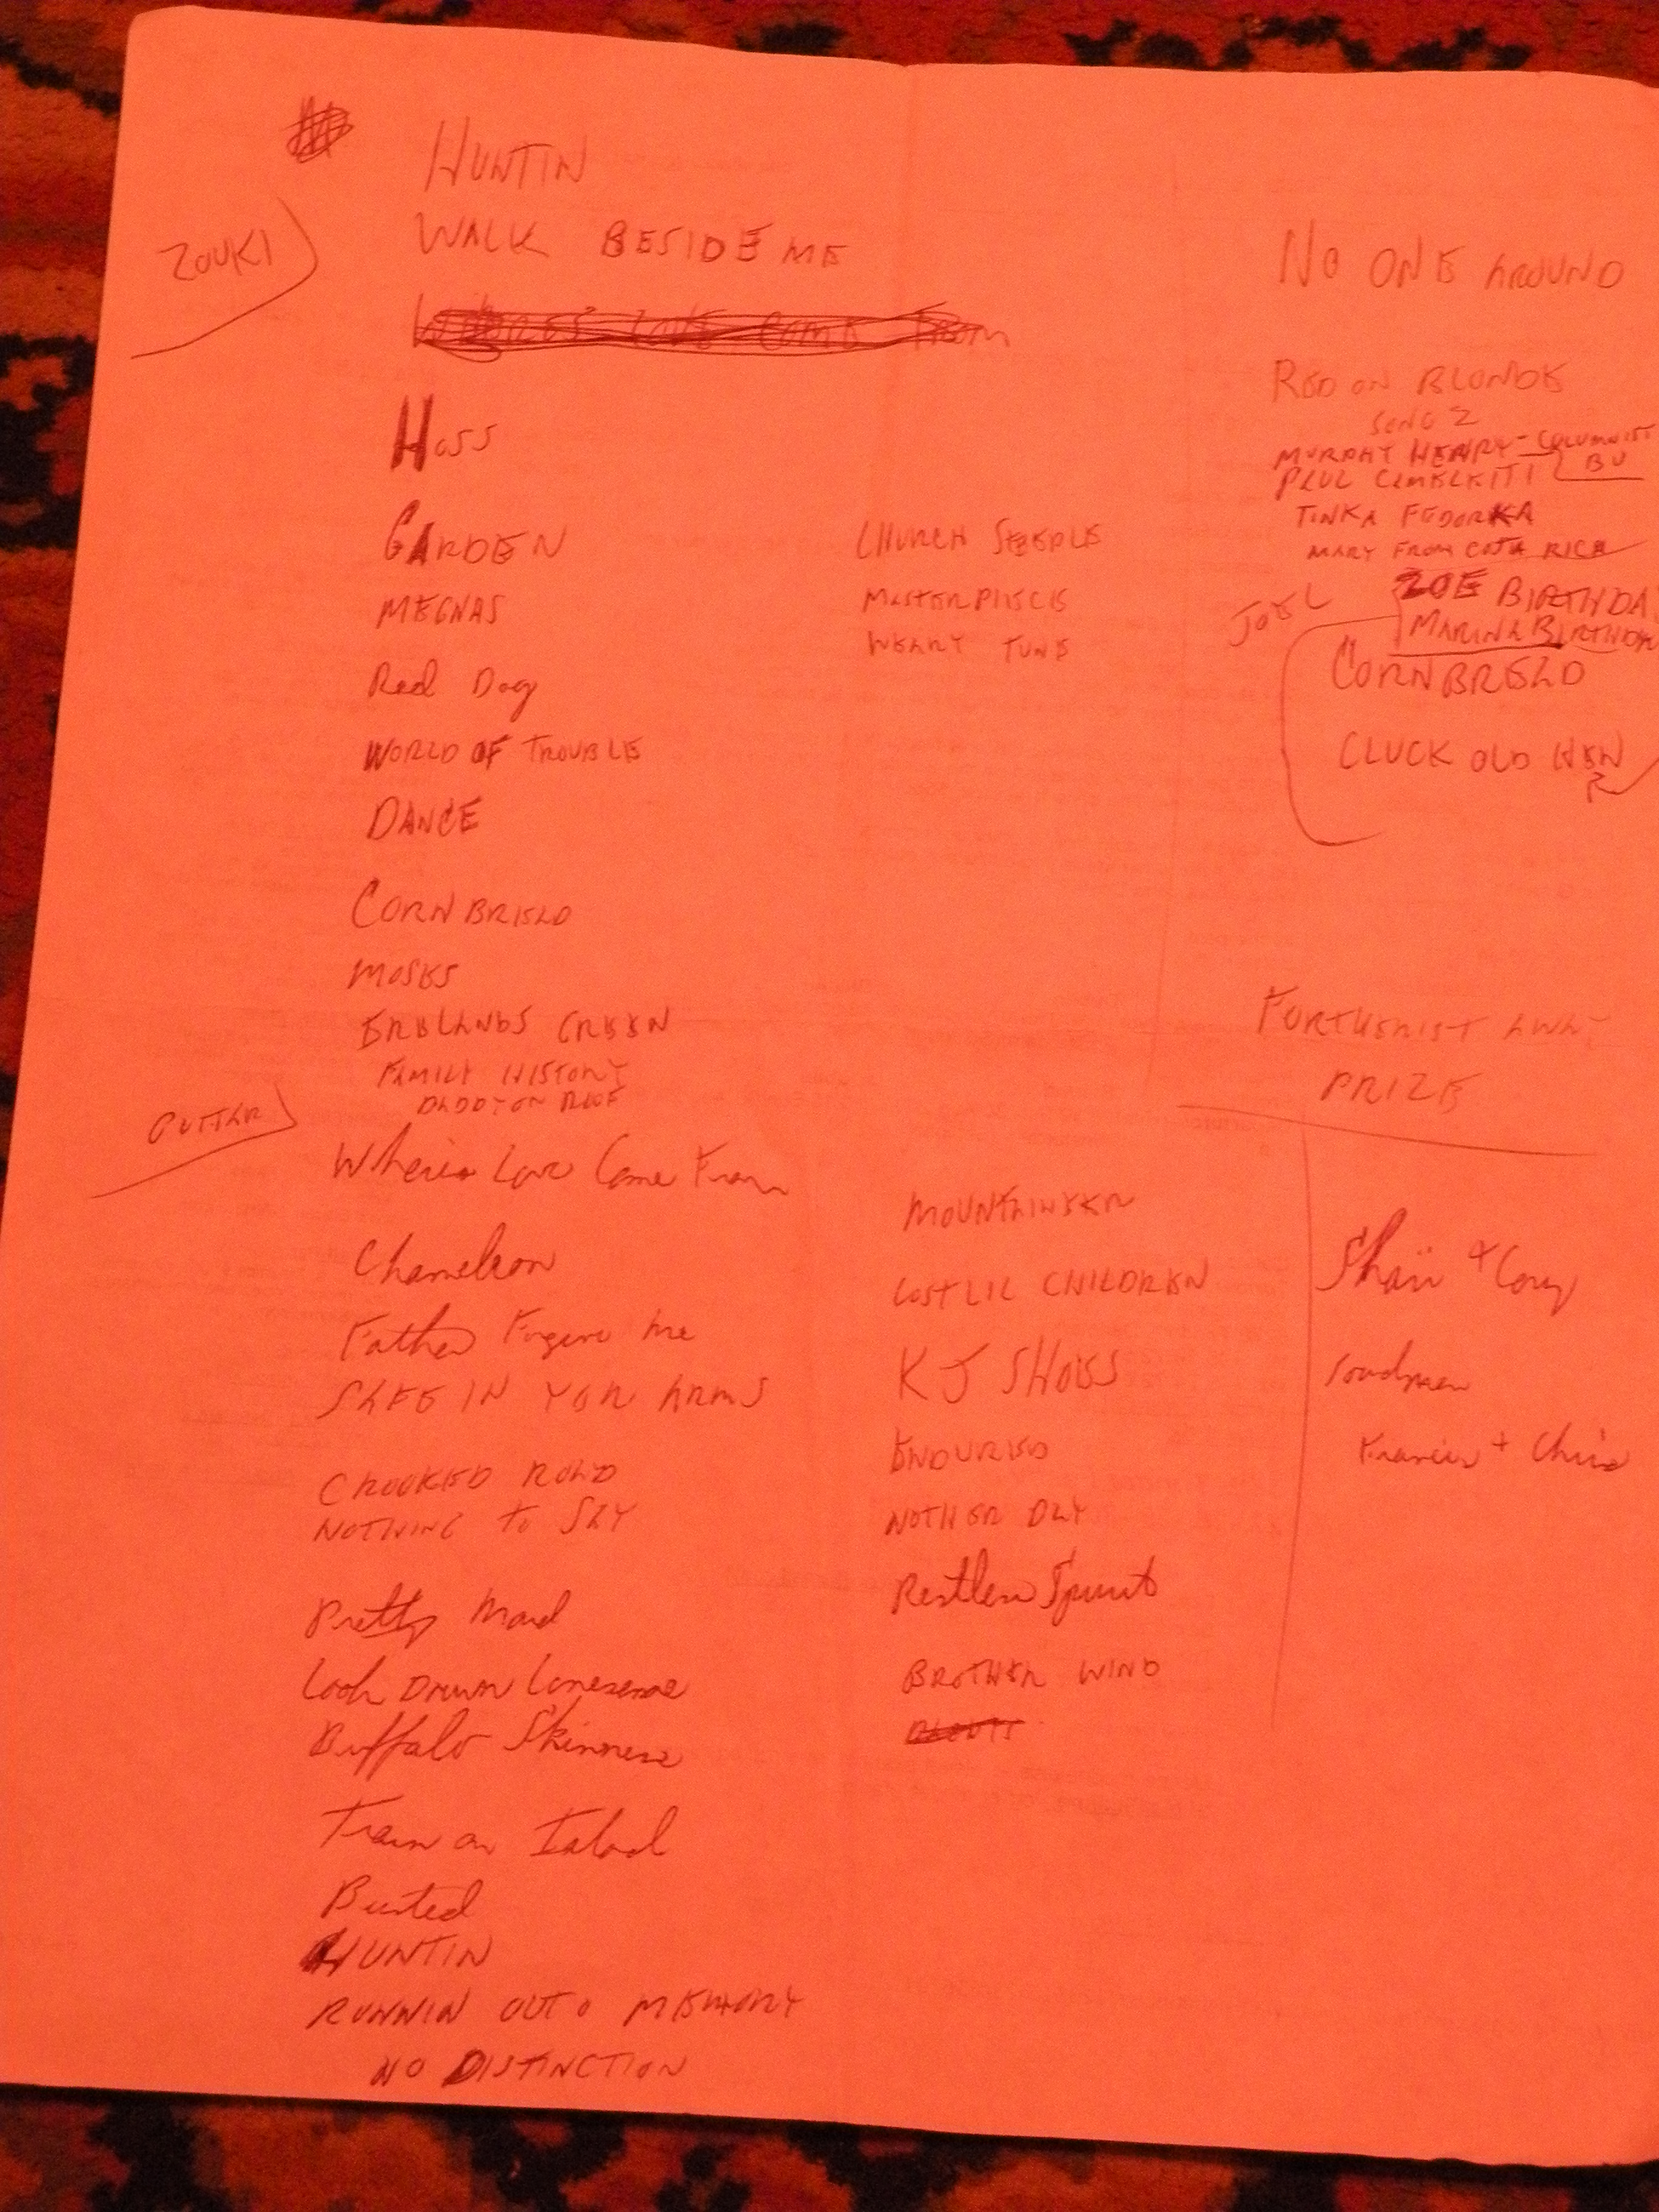 HUNTIN
ZOUKI
WALK BESIDE ME
HOSS
GARDEN
MEGNAS
Red Dog
WORLD OF TROUBLE
DANCE
CORNBREAD
MOSES
ERELANDS GREEN
FAMILY HISTORY
DADDY ON ROOF
GUITAR
Where's Love Come From
Chameleon
Father Forgive Me
SAFE IN YOR ARMS
CROOKED ROAD
NOTHING TO SAY
Pretty Maid
Look Down Lonesome
Buffalo Skinners
Train on Island
Busted
HUNTIN
RUNNIN OUT O MEMORY
NO DISTINCTION
CHURCH STEEPLE
MASTERPIECE
WEARY TUNE
MOUNTAINEER
LOST LIL CHILDREN
KJ SHOES
ENDURED
NOTHER DAY
Restless Spirit
BROTHER WIND
NO ONE AROUND
RED ON BLONDE
SONG 2
MURPHY HENRY - COLUMNIST
BU
TINKA FEDORKA
MARY FROM COSTA RICA
JOEL
ZOE BIRTHDAY
MARINA BIRTHDAY
CORNBREAD
CLUCK OLD HEN
FURTHERIST AWAY
PRIZE
+ Cory
soundmen
Francis + Chris